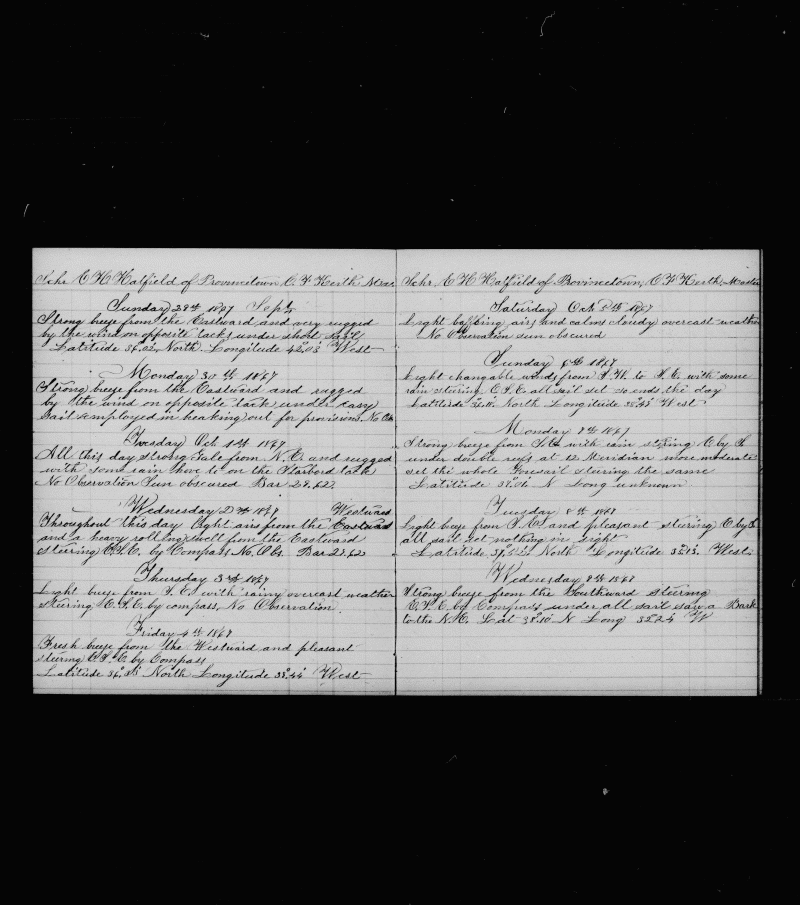 Schr E H Hatfield of Provincetown
Sunday 29th 1867 Sept
Strong breeze from the Eastward and very rugged
by the wind on opposite tacks under short sail
Latitude North Longitude West
Monday 30th 1867
Strong breeze from the Eastward and rugged
by the wind on opposite tack under easy
sail employed in breaking out for provisions No Obs
Tuesday Oct 1st 1867
All this day strong Gale from N.E. and rugged
with some rain hove to on the Starbord tack
No Observation Sun obscured Bar 29.62
Wednesday 2d 1867 Westward
Throughout this day light airs from the Eastward
and a heavy rolling swell from the Eastward
steering E.S.E. by Compass No Obs. Bar 29.62
Thursday 3d 1867
Light breeze from S.E with rainy overcast weather
steering E.S.E. by compass, No Observation
Friday 4th 1867
Fresh breeze from the Westward and pleasant
sturing E.S.E. by Compass
Latitude North Longitude West
Schr E H Hatfield of Provincetown, Master
Saturday Oct 5th 1867
Light baffling airs and calms cloudy overcast weather
No Observation sun obscured
Sunday 6th 1867
Light changable winds from to with some
rain sturing E.S.E. all sail set so ends the day
Lattitude North Longitude West
Monday 7th 1867
Strong breeze from with rain sturing E by S
under double refs at 12 Meridian more moderate
set the whole sturing the same
Latitude N Long unknown
Tuesday 8th 1867
Light breeze from and pleasant stuering E by S
all sail set nothing in sight
Latitude North Longitude West
Wednesday 9th 1867
Strong breeze from the Southward sturing
E.S.E by Compass under all sail saw a Bark
to the N.E. Lat N Long W